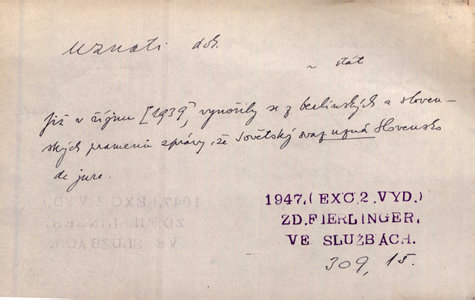 uznati dok.
~ stát
Již v říjnu [1939] vynořily se z berlínských a sloven-
ských pramenů zprávy, že Sovětský svaz uzná Slovensko
de jure.
1947.(EXC.2.VYD.)
ZD.FIERLINGER,
VE SLUŽBÁCH.
309, 15.